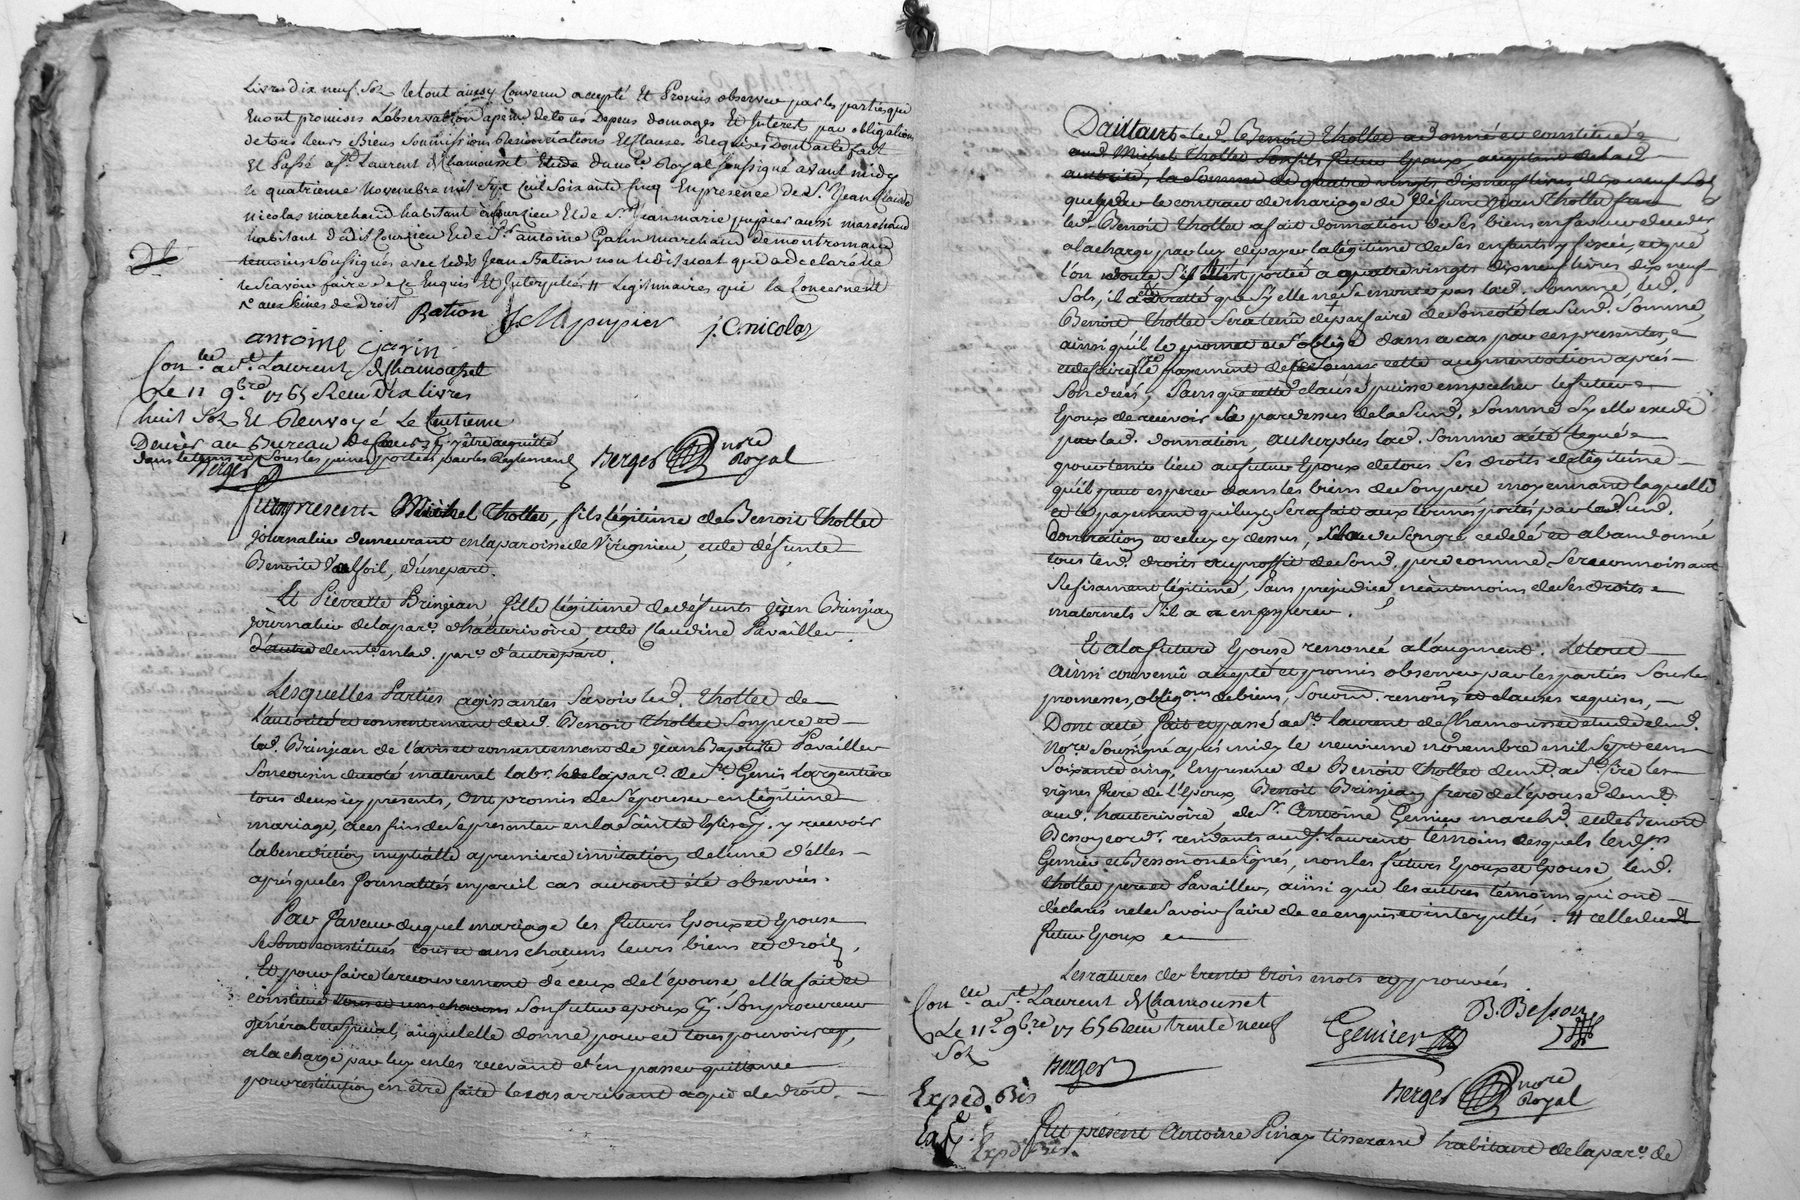 Livres dix neuf Sols le tout aussy Convenu accepté Et Promis observer par les parties qui
En ont promises L'observation a peine de tous Depens domages Et Interets par obligation
de tous leurs Biens Soumissions Renonciations Et Clauses Requises Dont acte fait
Et Passé a St Laurent de Chamousset Etude du nore Royal soussigné avant midy
le quatrieme novembre mil Sept Cent Soixante Cinq En presence de Sr Jean Claude
nicolas marchand habitant a Courzieu Et de Sr Jean marie pupier aussi marchand
habitant dudit Courzieu Et de Sr antoine Garin marchand de montromand
temoins Soussignés avec ledit Jean Bation non ledit qui a declaré ne
le Scavoir faire de ce Enquis Et Interpellés // Legitimaires que la Concernent
aux peines de droit
Bation JM pupier j. C. nicolas
antoine garin
Con.lle a St Laurent de Chamousset
Le 11 9bre 1765 Reçu Dix livres
huit Sols Et Renvoyé Le Centieme
Denier au Bureau de pr y être acquitté
dans le tems et Sous les peines portées par les Reglements
Berger Berger nore Royal
fut present Michel Thollet, fils légitime de Benoit Thollet
journalier demeurant en la paroisse de Virignieu, et de défunte
Benoite d'une part.
Et Pierrette Brinjean fille légitime de défunts Jean Brinjean
journalier de la par.e d'hauterivoire, et de Claudine Pavailler
d'autre demt. en lad. par.e d'autre part.
Lesquelles Parties agissantes Savoir led. Thollet de
l'autorité et consentement dud. Benoit Thollet son pere et
lad. Brinjean de l'avis et consentement de jean Baptiste Pavailler
Son cousin du coté maternel lab.r de la par.e de St Genis Largentière
tous deux icy presents, ont promis de s'epouser en légitime
mariage, a ces fins de Se presenter en la Sainte Eglise pr. y recevoir
la benediction nuptialle a premiere invitation de l'une d'elles
après que les formalités en pareil cas auront été observées.
Par faveur duquel mariage les futurs Epoux et Epouse
Se Sont constitués tous et uns chacuns leurs biens et droits,
Et pour faire le recouvrement de ceux de l'epouse elle a fait et
constitué tous et uns chacuns Son futur epoux pr. Son procureur
général et spécial, auquel elle donne pouvoir tous pouvoirs
a la charge par luy en les recevant et en passer quittance
pour restitution en être faite le cas arrivant a qui de droit.
D'ailleurs led. Benoit Thollet a donné et constitué
aud. Michel Thollet Son fils futur Epoux acceptant de lad.
autorité, la Somme de quatre vingts dix neuf livres dix neuf Sols
que par le contrat de mariage de défunt Jean Thollet frere
led. Benoit Thollet a fait donnation de Ses biens en faveur de
a la charge par luy de payer la légitime de Ses enfants y fixée, et que
l'on doute S'il est portée a quatre vingts dix neuf livres dix neuf
Sols, il a été arretté que Sy elle ne Se monte pas lad. Somme led.
Benoit Thollet Sera tenû de parfaire de Son coté la Susd. Somme,
ainsi qu'il le promet et S'oblige dans ce cas par ces presentes,
et de faire le payement de cette augmentation après
Son décès, Sans que cette clause puisse empecher le futur
Epoux de recevoir le par dessus de la Susd. Somme Sy elle excede
par lad. donnation, au Surplus lad. Somme a été leguée
pour tenir lieu au futur Epoux de tous Ses droits de légitime
qu'il peut esperer dans les biens de Son pere moyennant laquelle
et le payement qui luy Sera fait aux termes portés par la Susd.
Donnation et celuy cy dessus, il a de Son gré cedé et abandonné
tous lesd. droits au proffit de Sond. pere comme Se reconnoissant
Suffisament légitimé, Sans prejudice neantmoins de Ses droits
maternels S'il a a en esperer.
Et a la future Epouse renoncé a l'augment. Le tout
ainsi convenû accepté et promis observer par les parties Sous les
promesses, oblig.ons de biens, Soum. renon.s et clauses requises,
Dont acte fait et passé a St. Laurent de Chamousset etude dud.
Nore. Soussigné après midy le neuvieme novembre mil Sept cens
Soixante cinq, En presence de Benoit Thollet demt. a St. fire les
vignes frere de l'Epoux, Benoit Brinjean frere de l'epouse demt.
aud. hauterivoire, de Sr. Antoine Genier march.d et de Benoit
Besson cord.r residants aud. St. Laurent témoins desquels lesd.
Genier et Besson ont Signés, non les futurs Epoux et Epouse, led.
Thollet pere et Pavailler, ainsi que les autres témoins qui ont
déclarés ne le Savoir faire de ce enquis et interpellés. // celle dud.
futur Epoux
Les ratures de trente trois mots approuvées
Con.lle a St Laurent de Chamousset
Le 11e 9bre 1765 Reçu trente neuf
Sols
Berger Genier B. Besson
Berger nore Royal
Exped. Bis
Exped. Bis.
fut présent Antoine Pinay tisserand habitant de la par.e de